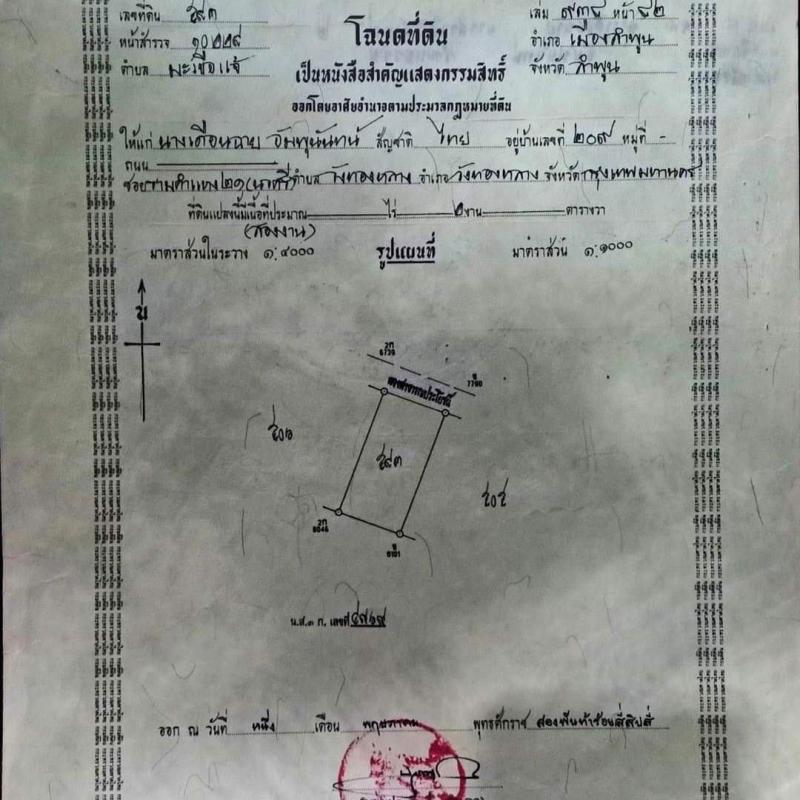 เลขที่ดิน ๖๙๓
เล่ม ๙๓๕ หน้า ๕๒
โฉนดที่ดิน
หน้าสำรวจ ๑๐๒๒๙
อำเภอ เมืองลำพูน
ตำบล มะเขือแจ้
เป็นหนังสือสำคัญแสดงกรรมสิทธิ์
จังหวัด ลำพูน
ออกโดยอาศัยอำนาจตามประมวลกฎหมายที่ดิน
ให้แก่ นางเดือนฉาย อัมพุนันทน์ สัญชาติ ไทย อยู่บ้านเลขที่ ๒๐๙ หมู่ที่ -
ถนน
ซอย รามคำแหง๒๑ ตำบล วังทองหลาง อำเภอ วังทองหลาง จังหวัด กรุงเทพมหานคร
ที่ดินแปลงนี้มีเนื้อที่ประมาณ ไร่ ๒ งาน ตารางวา
(สองงาน)
มาตราส่วนในระวาง ๑:๔๐๐๐ รูปแผนที่ มาตราส่วน ๑:๑๐๐๐
น
2ก
6739
ทางสาธารณประโยชน์
7790
๖๙๓
2ก
8046
น.ส.๓ ก. เลขที่
ออก ณ วันที่ หนึ่ง เดือน พฤษภาคม พุทธศักราช สองพันห้าร้อยสี่สิบสี่